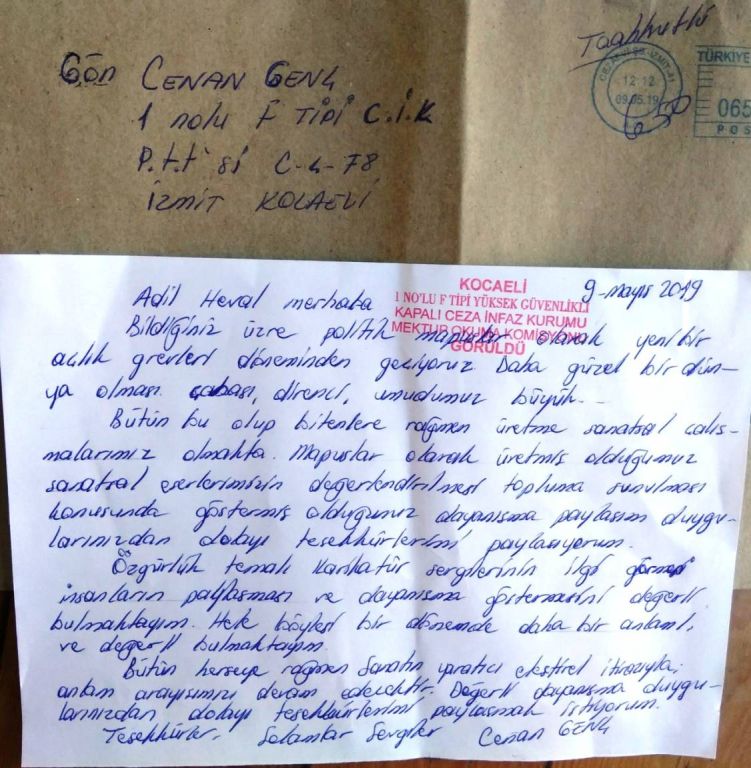 Taahhütlü
Gön CENAN GENÇ
1 nolu F TİPİ C.İ.K
P.t.t si C-4-78
İZMİT KOCAELİ
12 12
09.05.19
6.50
TÜRKİYE
065
POS
KOCAELİ
1 NO'LU F TİPİ YÜKSEK GÜVENLİKLİ
KAPALI CEZA İNFAZ KURUMU
MEKTUP OKUMA KOMİSYONU
GÖRÜLDÜ
9-mayıs 2019
Adil Heval merhaba
Bildiğiniz üzre politik mapuslar olarak yeni bir
açlık grevleri döneminden geçiyoruz. Daha güzel bir dün-
ya olması çabası, direnci, umudumuz büyük...
Bütün bu olup bitenlere rağmen üretme sanatsal çalış-
malarımız olmakta. Mapuslar olarak üretmiş olduğumuz
sanatsal eserlerimizin değerlendirilmesi topluma sunulması
konusunda göstermiş olduğunuz dayanışma paylaşım duygu-
larınızdan dolayı teşekkürlerimi paylaşıyorum.
Özgürlük temalı karikatür sergilerinin ilgi görmesi
insanların paylaşması ve dayanışma göstermesini değerli
bulmaktayım. Hele böylesi bir dönemde daha bir anlamlı,
ve değerli bulmaktayım.
Bütün herşeye rağmen sanatın yaratıcı eleştirel itirazıyla;
anlam arayışımız devam edecektir. Değerli dayanışma duygu-
larınızdan dolayı teşekkürlerimi paylaşmak istiyorum.
Teşekkürler. Selamlar Sevgiler Cenan GENÇ